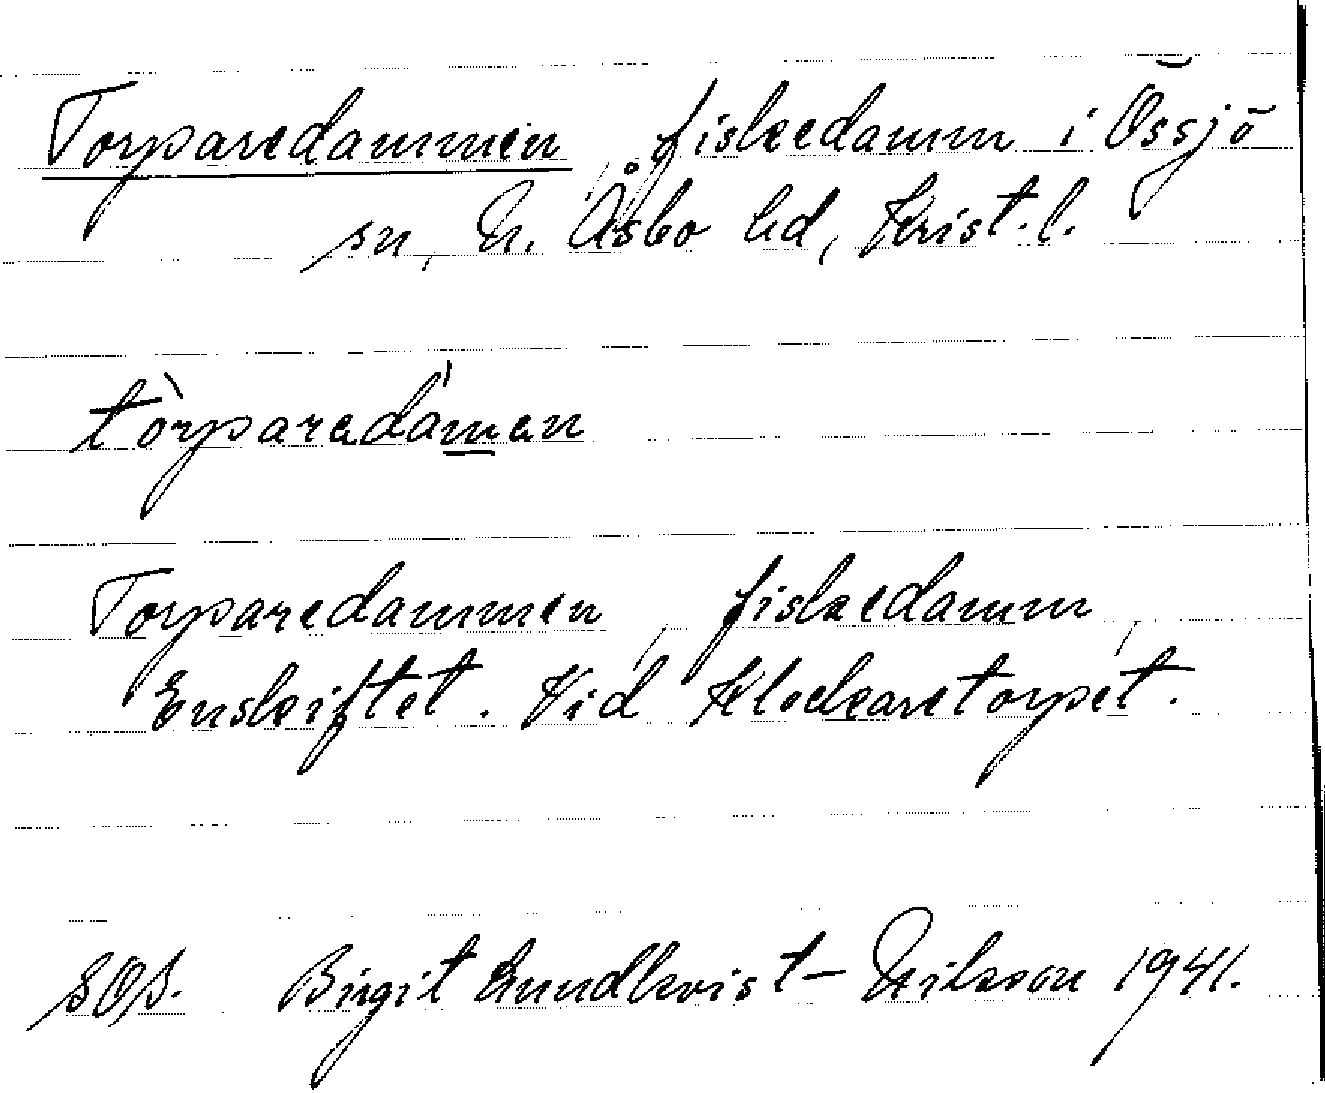 Torparedammen, fiskedamm i Össjö
sn, N. Åsbo hd, Krist. l.
tòrparadám̲an
Torparedammen, fiskedamm,
Enskiftet. Vid Klockaretorpet.
SOS. Birgit Lundkvist-Nilsson 1941.